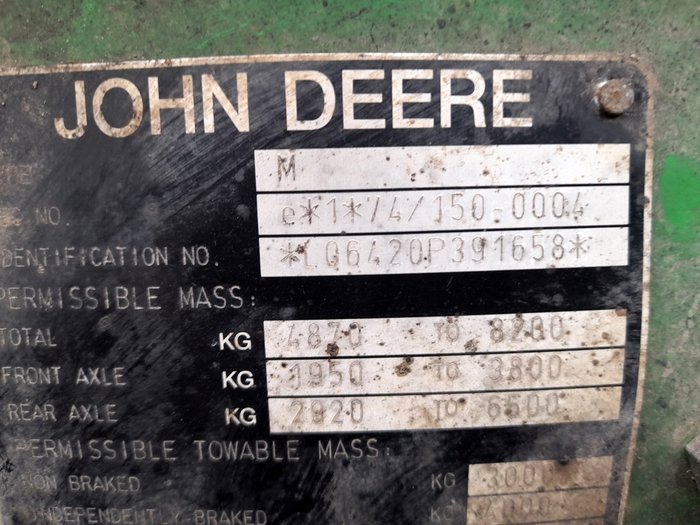 JOHN DEERE
M
NO. e*1*74/150-0004
IDENTIFICATION NO. *L06420P391658*
PERMISSIBLE MASS:
TOTAL KG 4870 TO 8200
FRONT AXLE KG 1950 TO 3800
REAR AXLE KG 2920 TO 6600
PERMISSIBLE TOWABLE MASS:
NON BRAKED KG
INDEPENDENTLY BRAKED KG